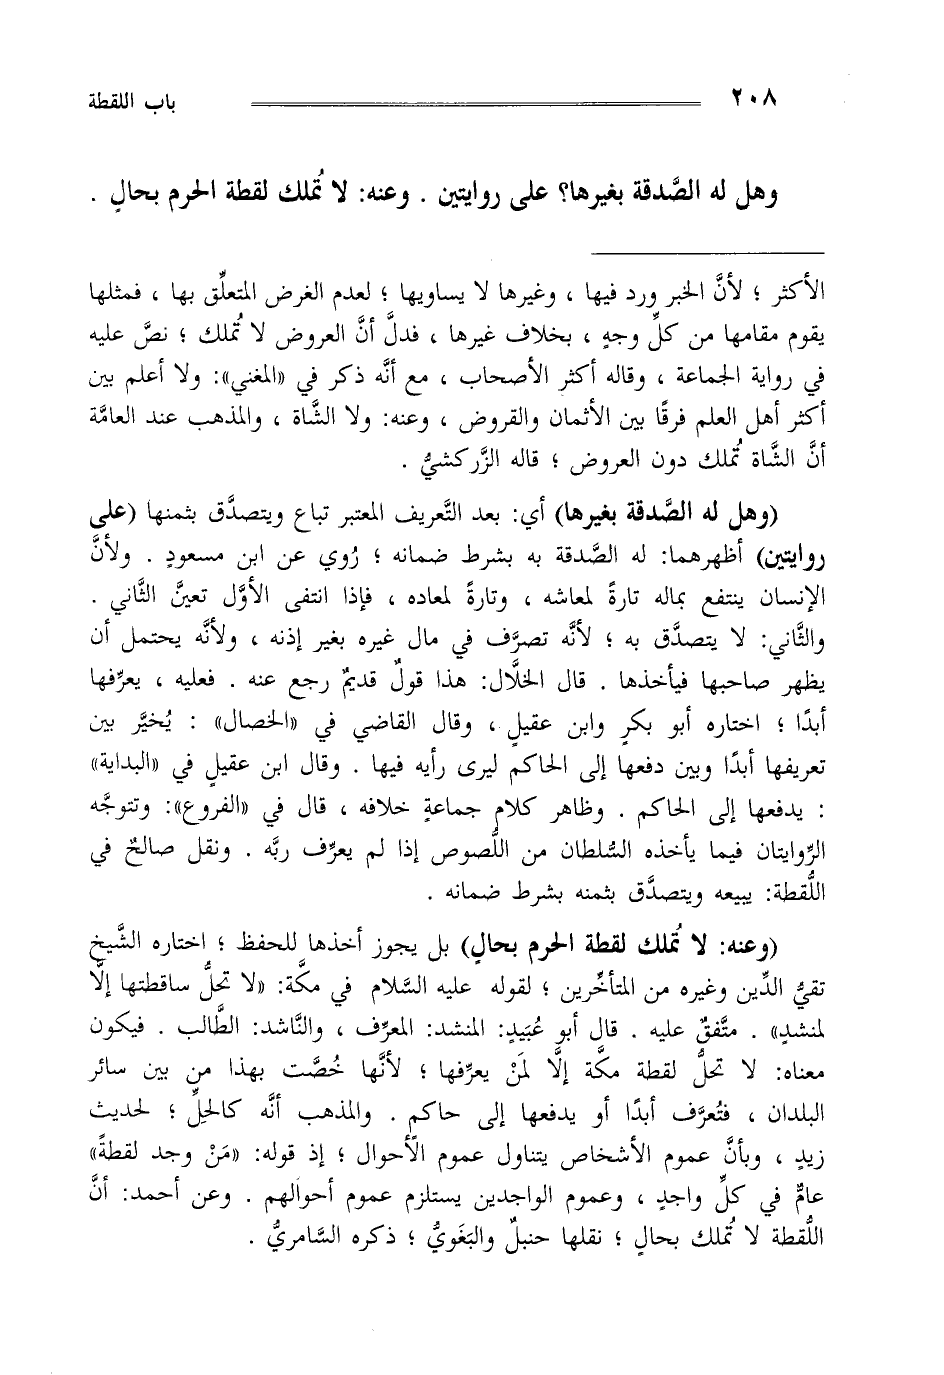 ٢٠٨ باب اللقطة
وهل له الصَّدقة بغيرها؟ على روايتين . وعنه: لا تُملك لقطة الحرم بحالٍ .
الأكثر ؛ لأنَّ الخبر ورد فيها ، وغيرها لا يساويها ؛ لعدم الغرض المتعلِّق بها ، فمثلها
يقوم مقامها من كلِّ وجهٍ ، بخلاف غيرها ، فدلَّ أنَّ العروض لا تُملك ؛ نصَّ عليه
في رواية الجماعة ، وقاله أكثر الأصحاب ، مع أنَّه ذكر في «المغني»: ولا أعلم بين
أكثر أهل العلم فرقًا بين الأثمان والقروض ، وعنه: ولا الشَّاة ، والمذهب عند العامَّة
أنَّ الشَّاة تُملك دون العروض ؛ قاله الزَّركشيُّ .
(وهل له الصَّدقة بغيرها) أي: بعد التَّعريف المعتبر تباع ويتصدَّق بثمنها (على
روايتين) أظهرهما: له الصَّدقة به بشرط ضمانه ؛ رُوي عن ابن مسعودٍ . ولأنَّ
الإنسان ينتفع بماله تارةً لمعاشه ، وتارةً لمعاده ، فإذا انتفى الأوَّل تعيَّن الثَّاني .
والثَّاني: لا يتصدَّق به ؛ لأنَّه تصرَّف في مال غيره بغير إذنه ، ولأنَّه يحتمل أن
يظهر صاحبها فيأخذها . قال الخلَّال: هذا قولٌ قديمٌ رجع عنه . فعليه ، يعرِّفها
أبدًا ؛ اختاره أبو بكرٍ وابن عقيلٍ ، وقال القاضي في «الخصال» : يُخيَّر بين
تعريفها أبدًا وبين دفعها إلى الحاكم ليرى رأيه فيها . وقال ابن عقيلٍ في «البداية»
: يدفعها إلى الحاكم . وظاهر كلام جماعةٍ خلافه ، قال في «الفروع»: وتتوجَّه
الرِّوايتان فيما يأخذه السُّلطان من اللُّصوص إذا لم يعرِّف ربَّه . ونقل صالحٌ في
اللُّقطة: يبيعه ويتصدَّق بثمنه بشرط ضمانه .
(وعنه: لا تُملك لقطة الحرم بحالٍ) بل يجوز أخذها للحفظ ؛ اختاره الشَّيخ
تقيُّ الدِّين وغيره من المتأخِّرين ؛ لقوله عليه السَّلام في مكَّة: «لا تحلُّ ساقطتها إلَّا
لمنشدٍ» . متَّفقٌ عليه . قال أبو عُبَيدٍ: المنشد: المعرِّف ، والنَّاشد: الطَّالب . فيكون
معناه: لا تحلُّ لقطة مكَّة إلَّا لمَنْ يعرِّفها ؛ لأنَّها خُصَّت بهذا من بين سائر
البلدان ، فتُعرَّف أبدًا أو يدفعها إلى حاكمٍ . والمذهب أنَّه كالحِلِّ ؛ لحديث
زيدٍ ، وبأنَّ عموم الأشخاص يتناول عموم الأحوال ؛ إذ قوله: «مَنْ وجد لقطةً»
عامٌّ في كلِّ واجدٍ ، وعموم الواجدين يستلزم عموم أحوالهم . وعن أحمد: أنَّ
اللُّقطة لا تُملك بحالٍ ؛ نقلها حنبلٌ والبَغَويُّ ؛ ذكره السَّامريُّ .